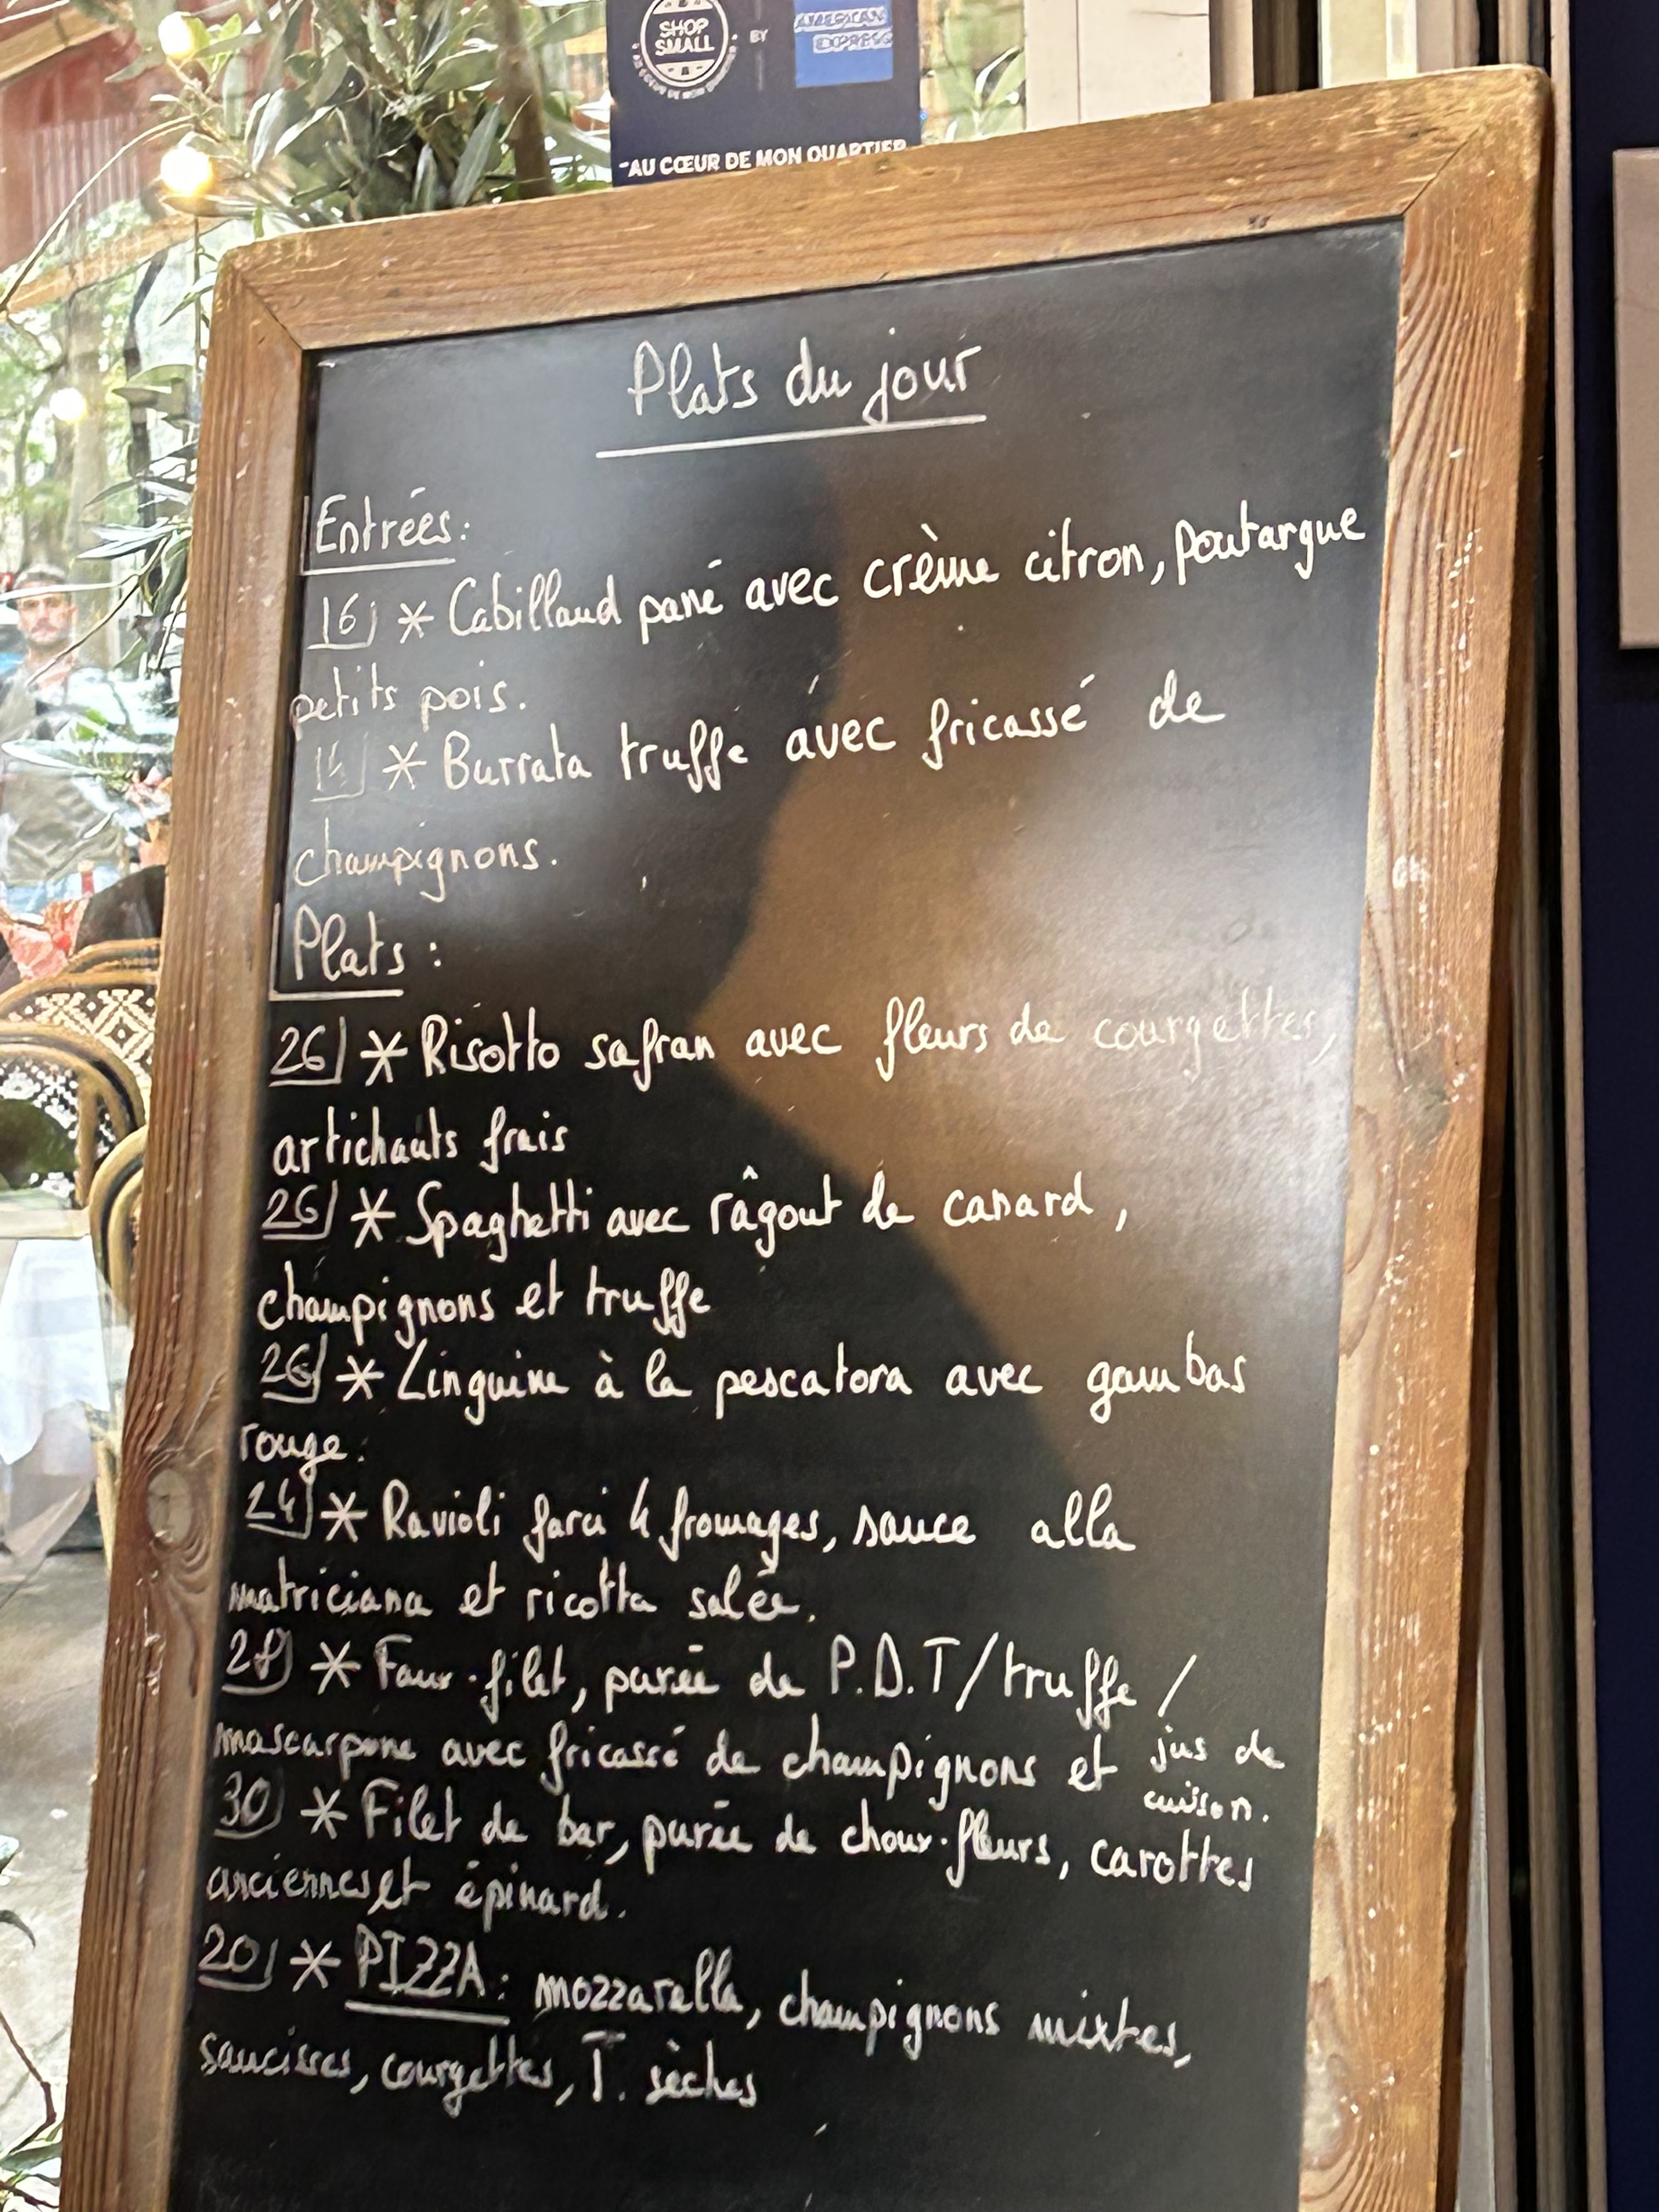 SHOP
SMALL
BY
AMERICAN
EXPRESS
"AU CŒUR DE MON QUARTIER
Plats du jour
Entrées:
16 * Cabillaud pané avec crème citron, poutargue
petits pois.
14 * Burrata truffe avec fricassé de
champignons.
Plats :
26 * Risotto safran avec fleurs de courgettes,
artichauts frais
26 * Spaghetti avec râgout de canard ,
champignons et truffe
26 * Linguine à la pescatora avec gambas
rouge.
24 * Ravioli farci 4 fromages, sauce alla
matriciana et ricotta salée.
28 * Faux-filet, purée de P.D.T/truffe /
mascarpone avec fricassé de champignons et jus de
cuisson.
30 * Filet de bar, purée de choux-fleurs, carottes
anciennes et épinard.
20 * PIZZA: mozzarella, champignons mixtes,
saucisses, courgettes, T. sèches